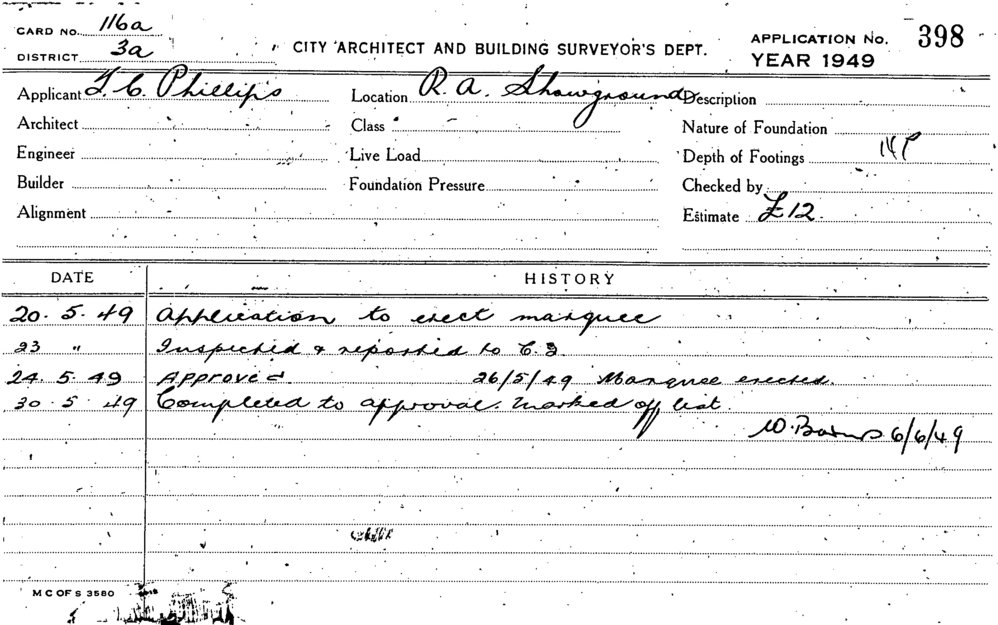 CARD NO. 116a
DISTRICT 3a
CITY ARCHITECT AND BUILDING SURVEYOR'S DEPT.
APPLICATION No. 398
YEAR 1949
Applicant T. C. Phillips Location R. A. Showground Description
Architect Class Nature of Foundation
Engineer Live Load Depth of Footings
Builder Foundation Pressure Checked by
Alignment Estimate £12.
DATE HISTORY
20. 5. 49 Application to erect marquee
23 " Inspected & reported to C.
24. 5. 49 Approved. 26/5/49 Marquee erected.
30. 5. 49 Completed to approval. Marked off list.
6/6/49
M C OF S 3580